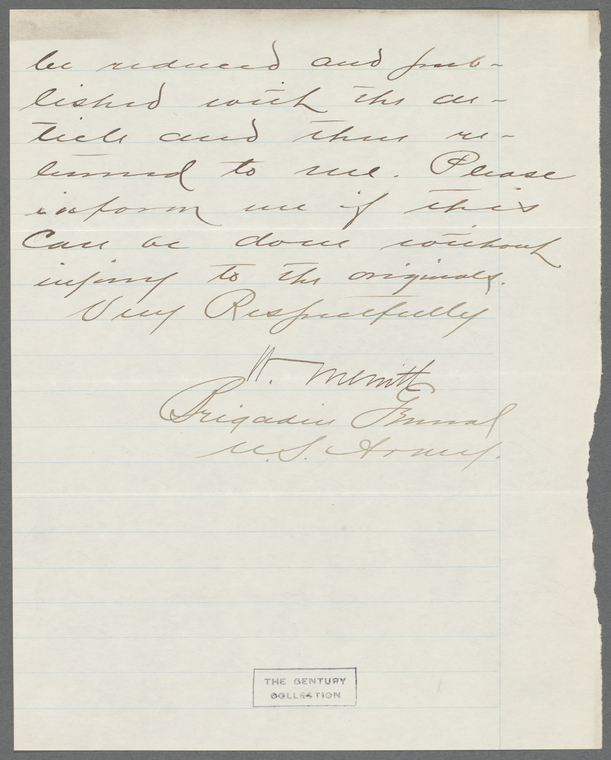 be reduced and pub-
lished with the ar-
ticle and then re-
turned to me. Please
inform me if this
Can be done without
injury to the originals.
Very Respectfully
W. Merritt
Brigadier General
U.S. Army.
THE CENTURY
COLLECTION